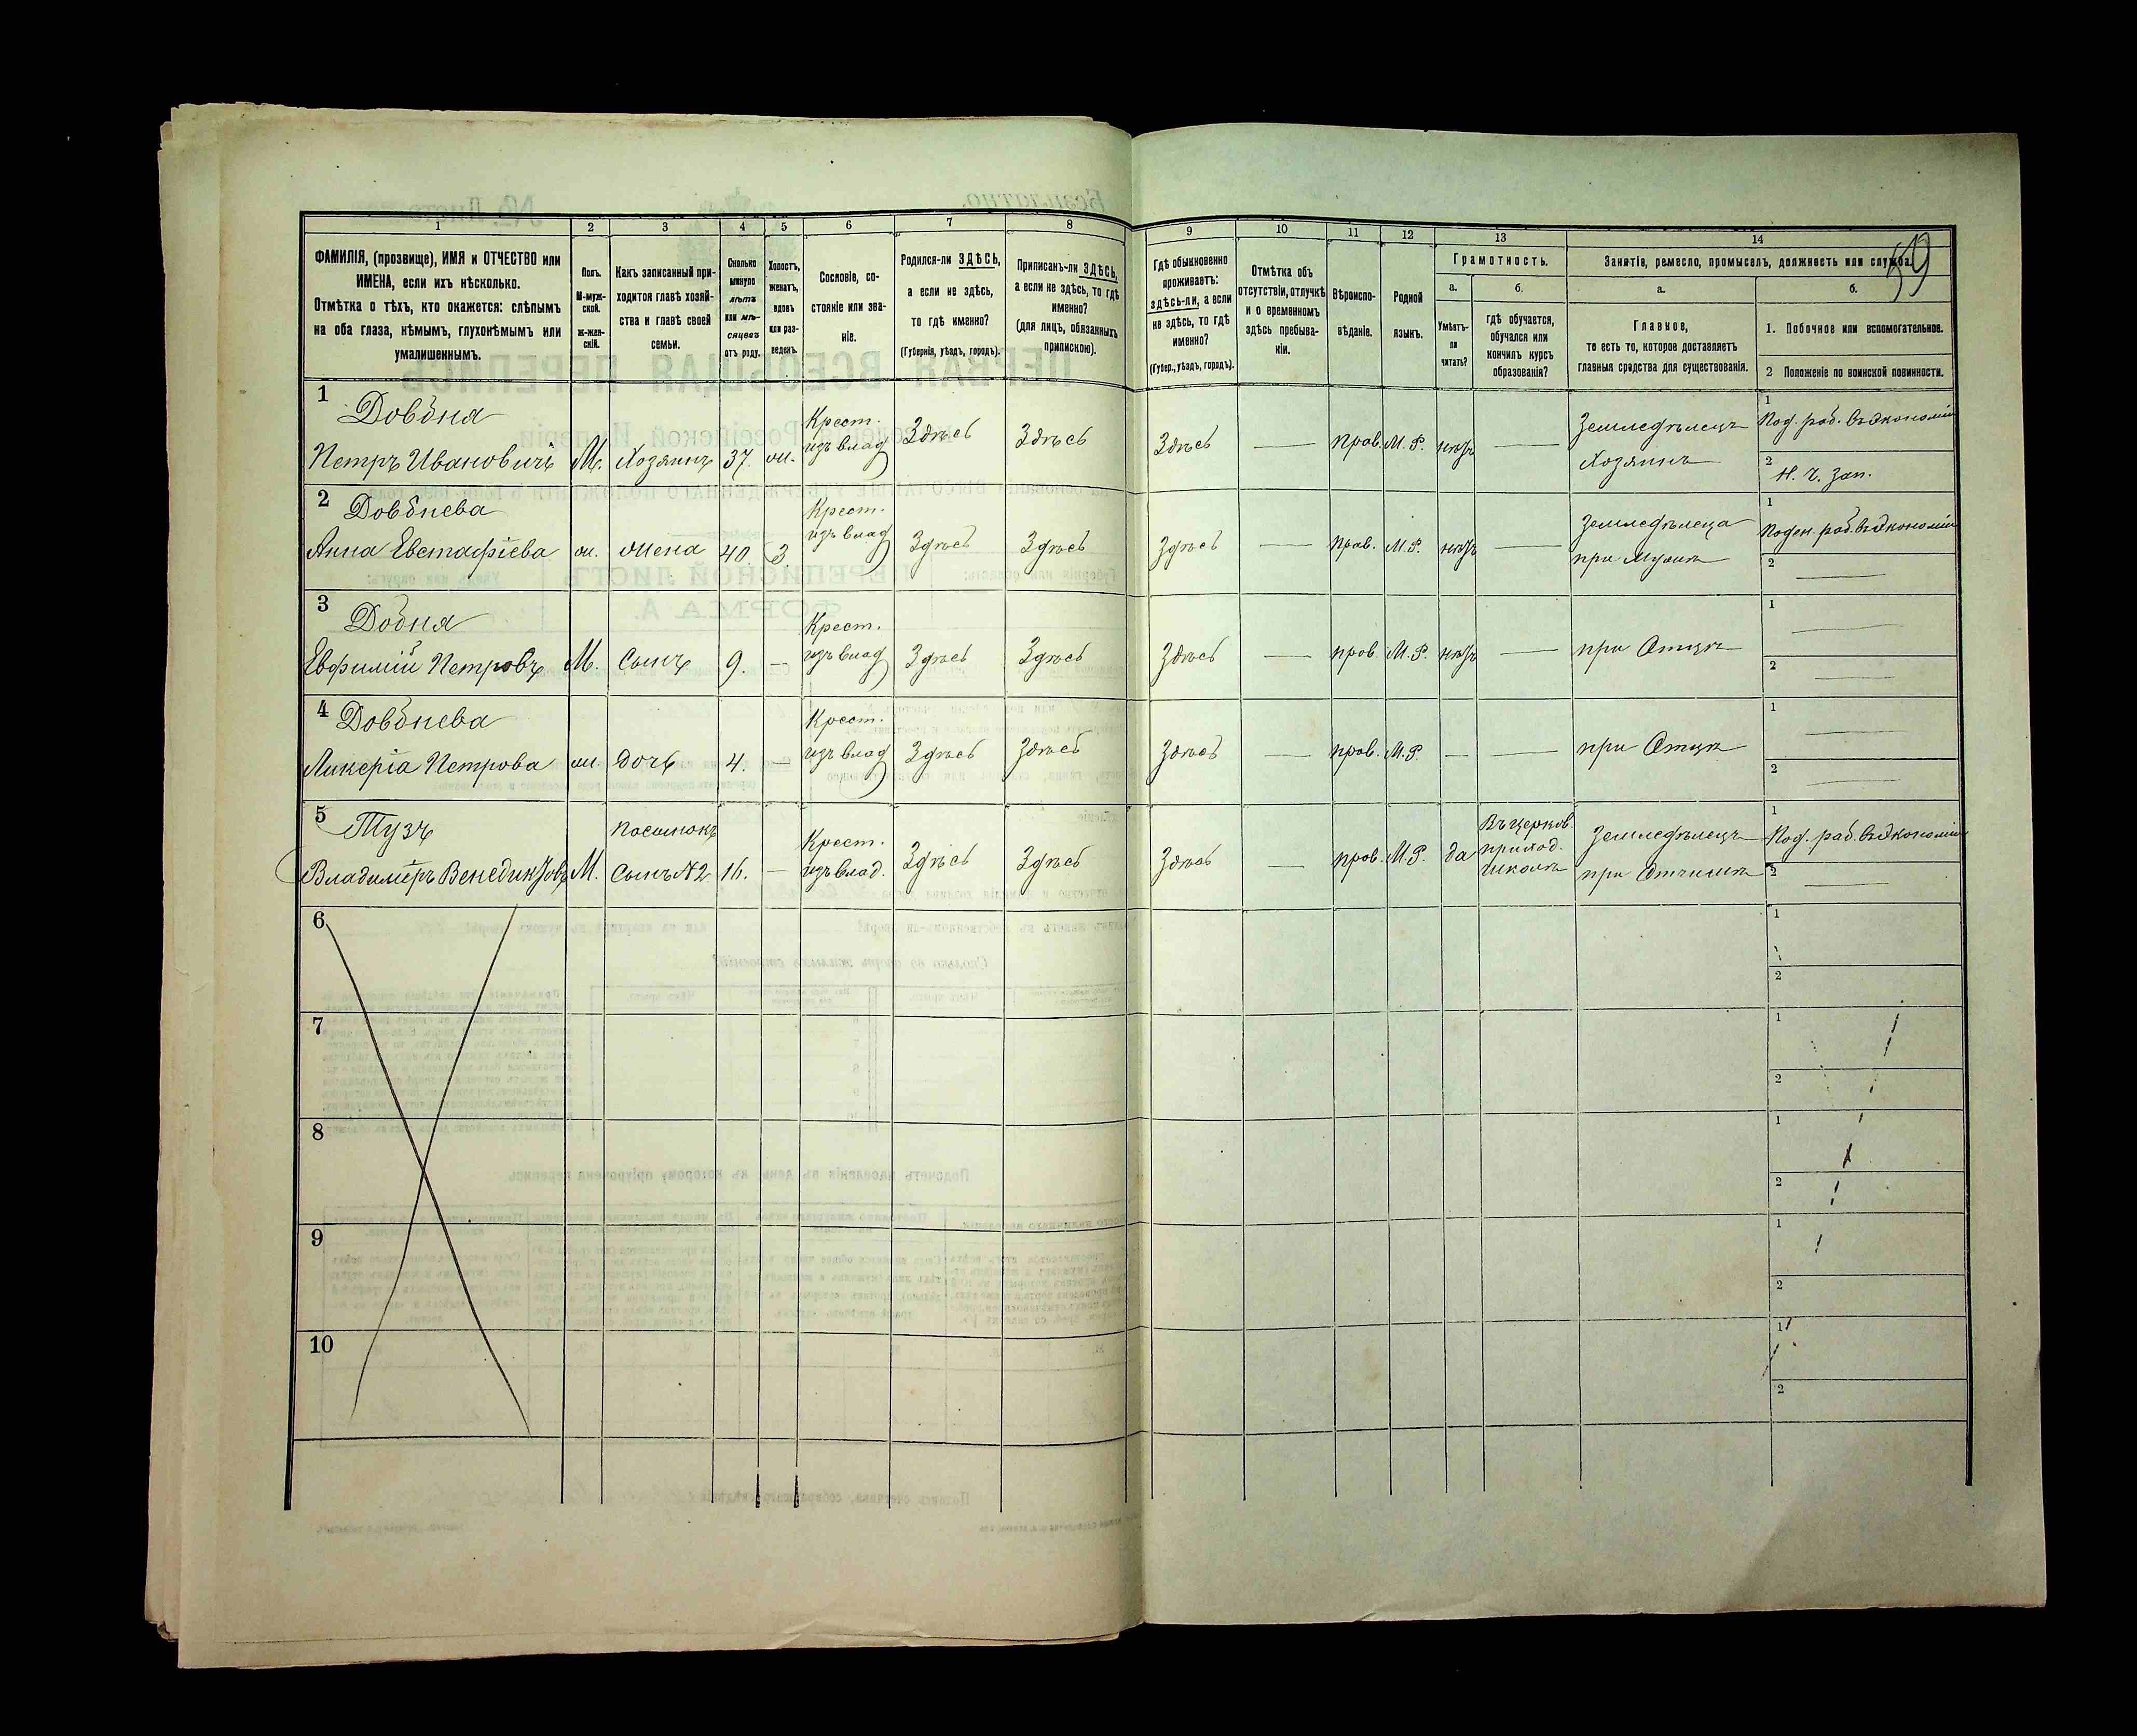 59
1 2 3 4 5 6 7 8 9 10 11 12 13 14
ФАМИЛІЯ, (прозвище), ИМЯ и ОТЧЕСТВО или
ИМЕНА, если ихъ нѣсколько.
Отмѣтка о тѣхъ, кто окажется: слѣпымъ
на оба глаза, нѣмымъ, глухонѣмымъ или
умалишеннымъ.
Полъ.
М-муж-
ской.
Ж-жен-
скій.
Какъ записанный при-
ходится главѣ хозяй-
ства и главѣ своей
семьи.
Сколько
минуло
лѣтъ
или мѣ-
сяцевъ
отъ роду.
Холостъ,
женатъ,
вдовъ
или раз-
веденъ.
Сословіе, со-
стояніе или зва-
ніе.
Родился-ли ЗДѢСЬ,
а если не здѣсь,
то гдѣ именно?
(Губернія, уѣздъ, городъ).
Приписанъ-ли ЗДѢСЬ,
а если не здѣсь, то гдѣ
именно?
(для лицъ, обязанныхъ
припискою).
Гдѣ обыкновенно
проживаетъ:
здѣсь-ли, а если
не здѣсь, то гдѣ
именно?
(Губер., уѣздъ, городъ).
Отмѣтка объ
отсутствіи, отлучкѣ
и о временномъ
здѣсь пребыва-
ніи.
Вѣроиспо-
вѣданіе.
Родной
языкъ.
Грамотность.
а.
Умѣетъ-
ли
читать?
б.
гдѣ обучается,
обучался или
кончилъ курсъ
образованія?
Занятіе, ремесло, промыселъ, должность или служба.
а.
Главное,
то есть то, которое доставляетъ
главныя средства для существованія.
б.
1. Побочное или вспомогательное.
2 Положеніе по воинской повинности.
1 Довбня
Петръ Ивановичъ М. Хозяинъ 37. ж. Крест. изъ влад Здѣсь Здѣсь Здѣсь — прав. М. Р. нѣтъ — Земледѣлецъ Хозяинъ
1 Под. раб. въ экономіи
2 Н. ч. зап.
2 Довбнева
Анна Евстафіева ж. жена 40. З. Крест. изъ влад Здѣсь Здѣсь Здѣсь — прав. М. Р. нѣтъ — Земледѣлица при Мужѣ
1 Поден. раб. въ экономіи
2 —
3 Добня
Евфимій Петровъ М. Сынъ 9. — Крест. изъ влад Здѣсь Здѣсь Здѣсь — прав М. Р. нѣтъ — при Отцѣ
1 —
2 —
4 Довбнева
Ликерія Петрова ж. дочь 4. — Крест. изъ влад Здѣсь Здѣсь Здѣсь — прав. М. Р. — — при Отцѣ
1 —
2 —
5 Тузъ
Владимеръ Венедиктовъ М. пасынокъ Сынъ №2 16. — Крест. изъ влад. Здѣсь Здѣсь Здѣсь — прав. М. Р. да Въ церков. приход. школѣ Земледѣлецъ при Отчимѣ
1 Под. раб. въ экономіи
2 —
6
1
2
7
1
2
8
1
2
9
1
2
10
1
2